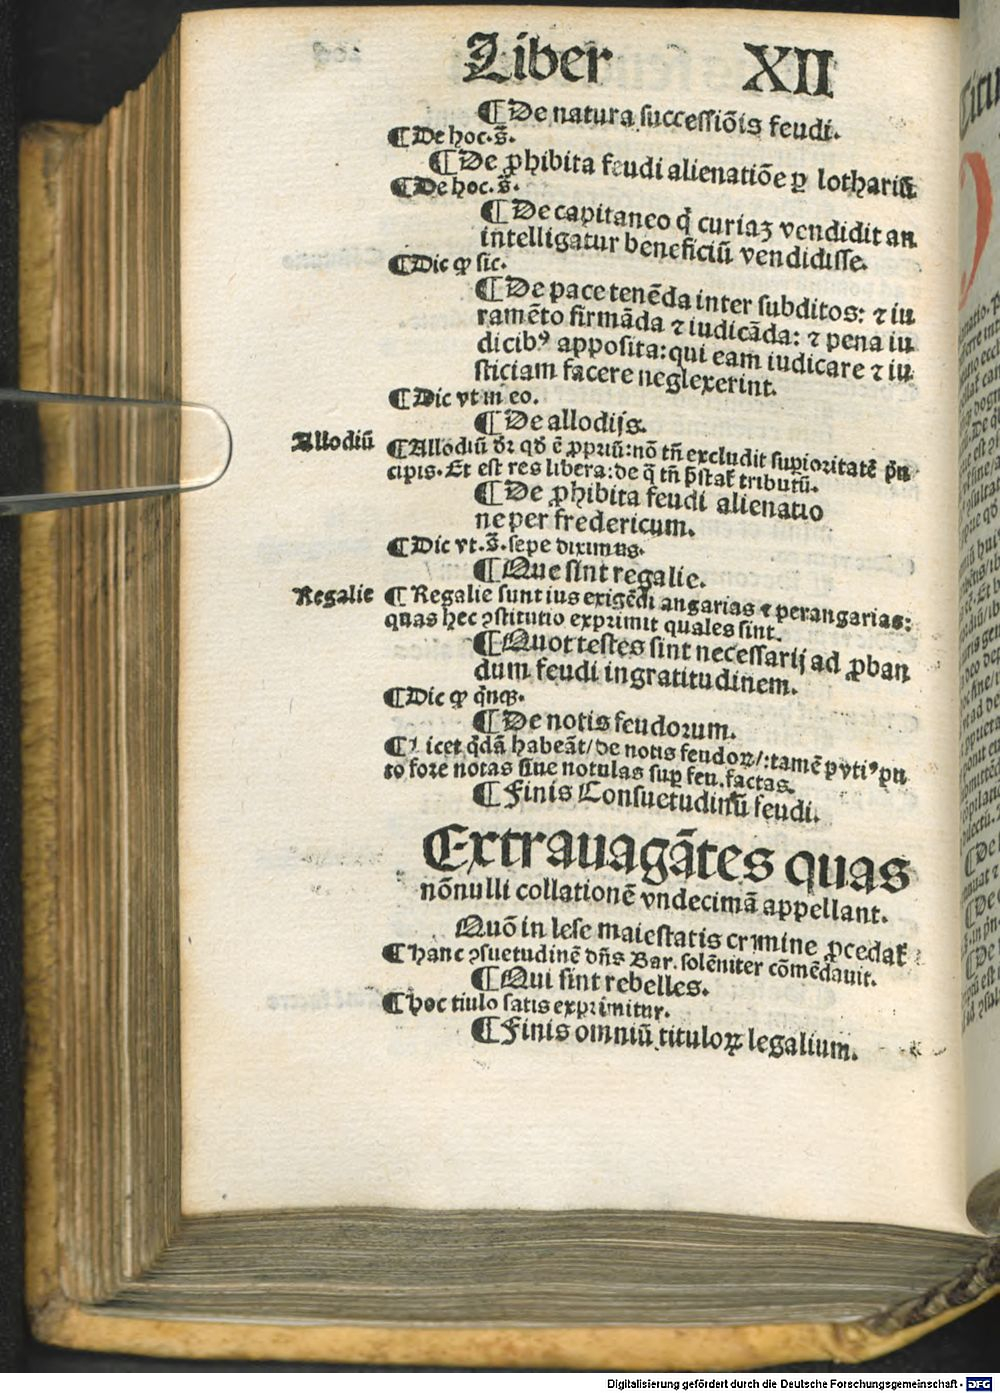 Liber XII
¶ De natura successiõis feudi.
¶ De hoc.s̃.
¶ De ꝓhibita feudi alienatiõe ꝑ lothariũ
¶ De hoc.s̃.
¶ De capitaneo q̃ curiaʒ vendidit an
intelligatur beneficiũ vendidisse.
¶ Dic ꝙ sic.
¶ De pace tenẽda inter subditos: ⁊ iu
ramẽto firmãda ⁊ iudicãda: ⁊ pena iu
dicibꝰ apposita: qui eam iudicare ⁊ iu
sticiam facere neglexerint.
¶ Dic vt in eo.
¶ De allodijs.
Allodiũ
¶ Allodiũ dr̃ qd̃ ẽ ꝓpriũ: nõ tñ excludit supioritatẽ p̃n
cipis. Et est res libera: de q̃ tñ p̃stat̃ tributũ.
¶ De ꝓhibita feudi alienatio
ne per fredericum.
¶ Dic vt.s̃.sepe diximus.
¶ Que sint regalie.
Regalie
¶ Regalie sunt ius exigẽdi angarias ⁊ perangarias:
quas hec ꝯstitutio exprimit quales sint.
¶ Quot testes sint necessarij ad ꝓban
dum feudi ingratitudinem.
¶ Dic ꝙ q̃nqꝫ.
¶ De notis feudorum.
¶ Licet q̃dã habeãt/de notis feudoꝝ/:tamẽ ꝑvtiꝰ pu
to fore notas siue notulas sup feu. factas.
¶ Finis Consuetudinũ feudi.
Extrauagãtes quas
nõnulli collationẽ vndecimã appellant.
Quõ in lese maiestatis crimine ꝓcedat̃
¶ hanc ꝯsuetudinẽ dñs Bar. solẽniter cõmẽdauit.
¶ Qui sint rebelles.
¶ hoc titulo satis exprimitur.
¶ Finis omniũ tituloꝝ legalium.
Digitalisierung gefördert durch die Deutsche Forschungsgemeinschaft - DFG